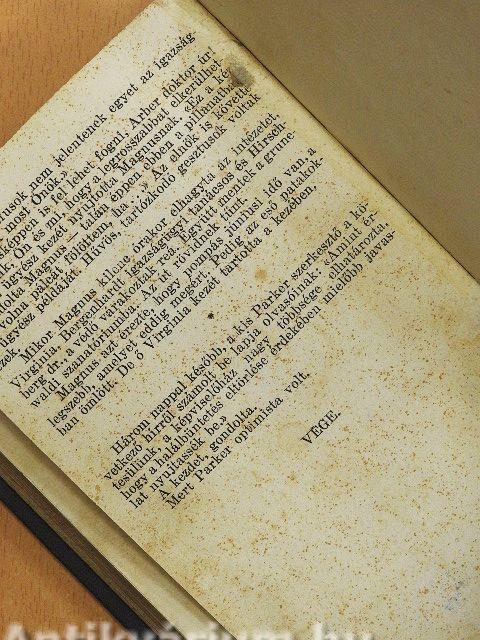 nem jelentenek egyet az igazság
most Önök.»
képpen is fel lehet fogni, Arber doktor úr!
Ön és mi, hogy a legrosszabbat elkerülhet-
ügyész kezét nyújtotta Magnusnak. «Ez a kéz
Magnus — talán éppen ebben a pillanatban
volna pálcát fölöttem, ha…» Az elnök is követte
ügyész példáját. Hűvös, tartózkodó gesztusok voltak
ezek
Mikor Magnus kilenc órakor elhagyta az intézetet,
Virginia, Bergenhardt igazságügyi tanácsos és Hirsch-
berg dr., a védő várakoztak reá. Együtt mentek a grune-
waldi szanatóriumba. Az út rövidnek tűnt.
Magnus azt érezte, hogy pompás júniusi idő van, a
legszebb, amelyet eddig megért. Pedig az eső patakok-
ban ömlött. De ő Virginia kezét tartotta a kezében.
Három nappal később, a kis Parker szerkesztő a kö-
vetkező hírről számolt be lapja olvasóinak: «Amint ér-
tesülünk, a képviselőház nagy többsége elhatározta,
hogy a halálbüntetés eltörlése érdekében mielőbb javas-
lat nyujtassék be.»
A kezdet, gondolta.
Mert Parker optimista volt.
VÉGE.
Antikvárium.hu